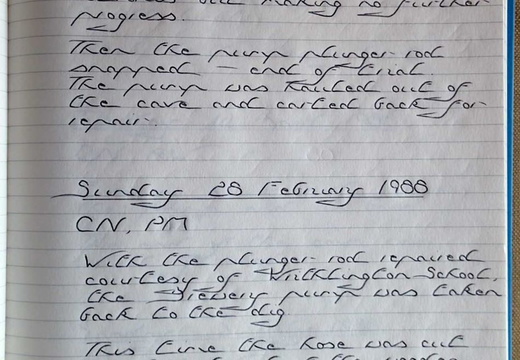 making no further
progress.
Then the pump plunger rod
snapped – end of trial.
The pump was hauled out of
the cave and carted back for
repair.
Sunday 28 February 1988
CN, PM
With the plunger rod repaired
courtesy of School,
the Brewery pump was taken
back to the dig
This time the hose was